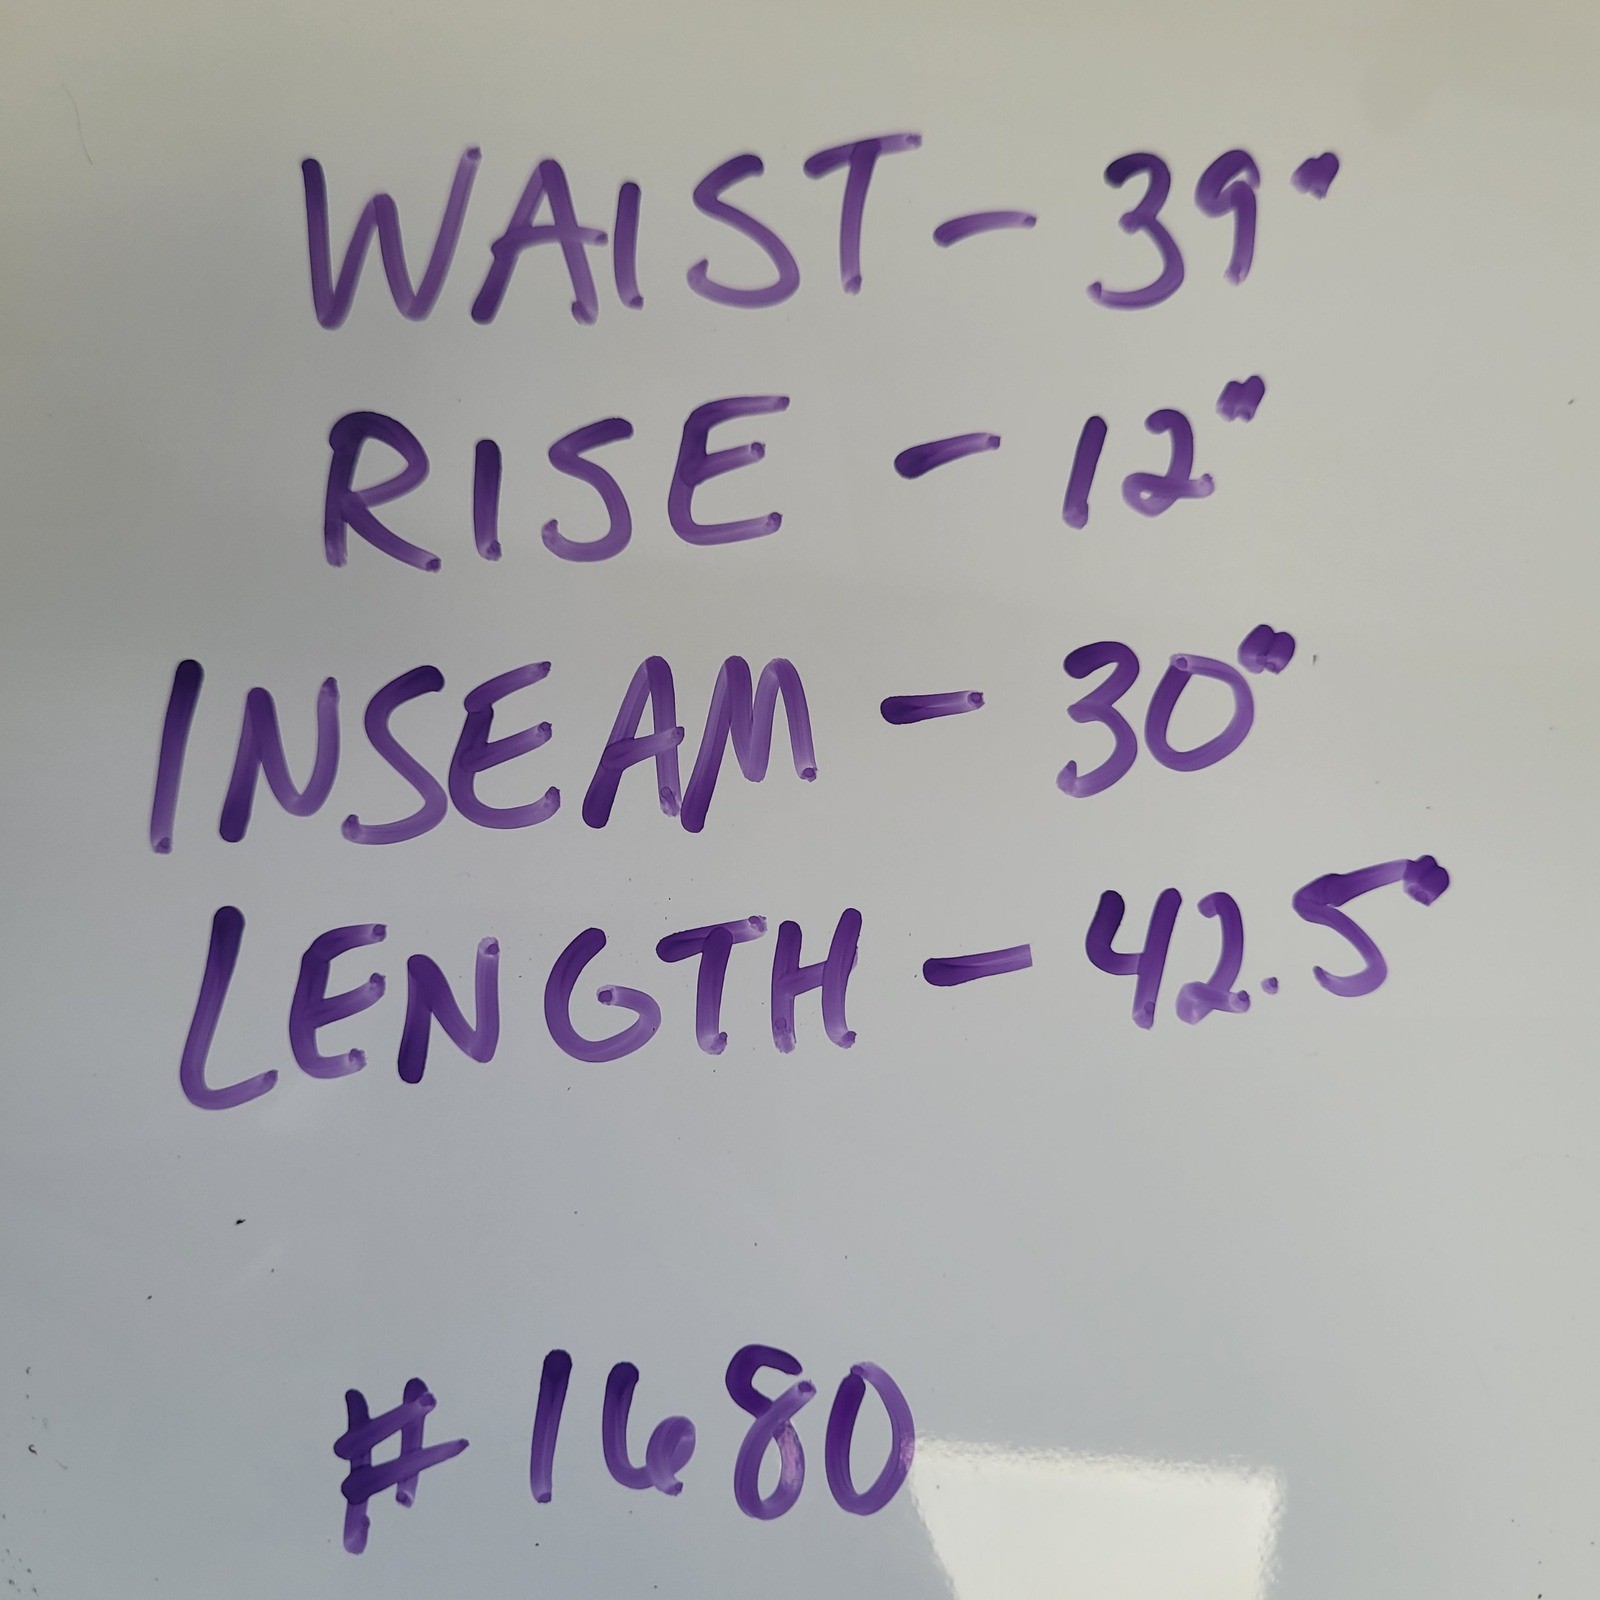 WAIST - 39"
RISE - 12"
INSEAM - 30"
LENGTH - 42.5"
# 1680